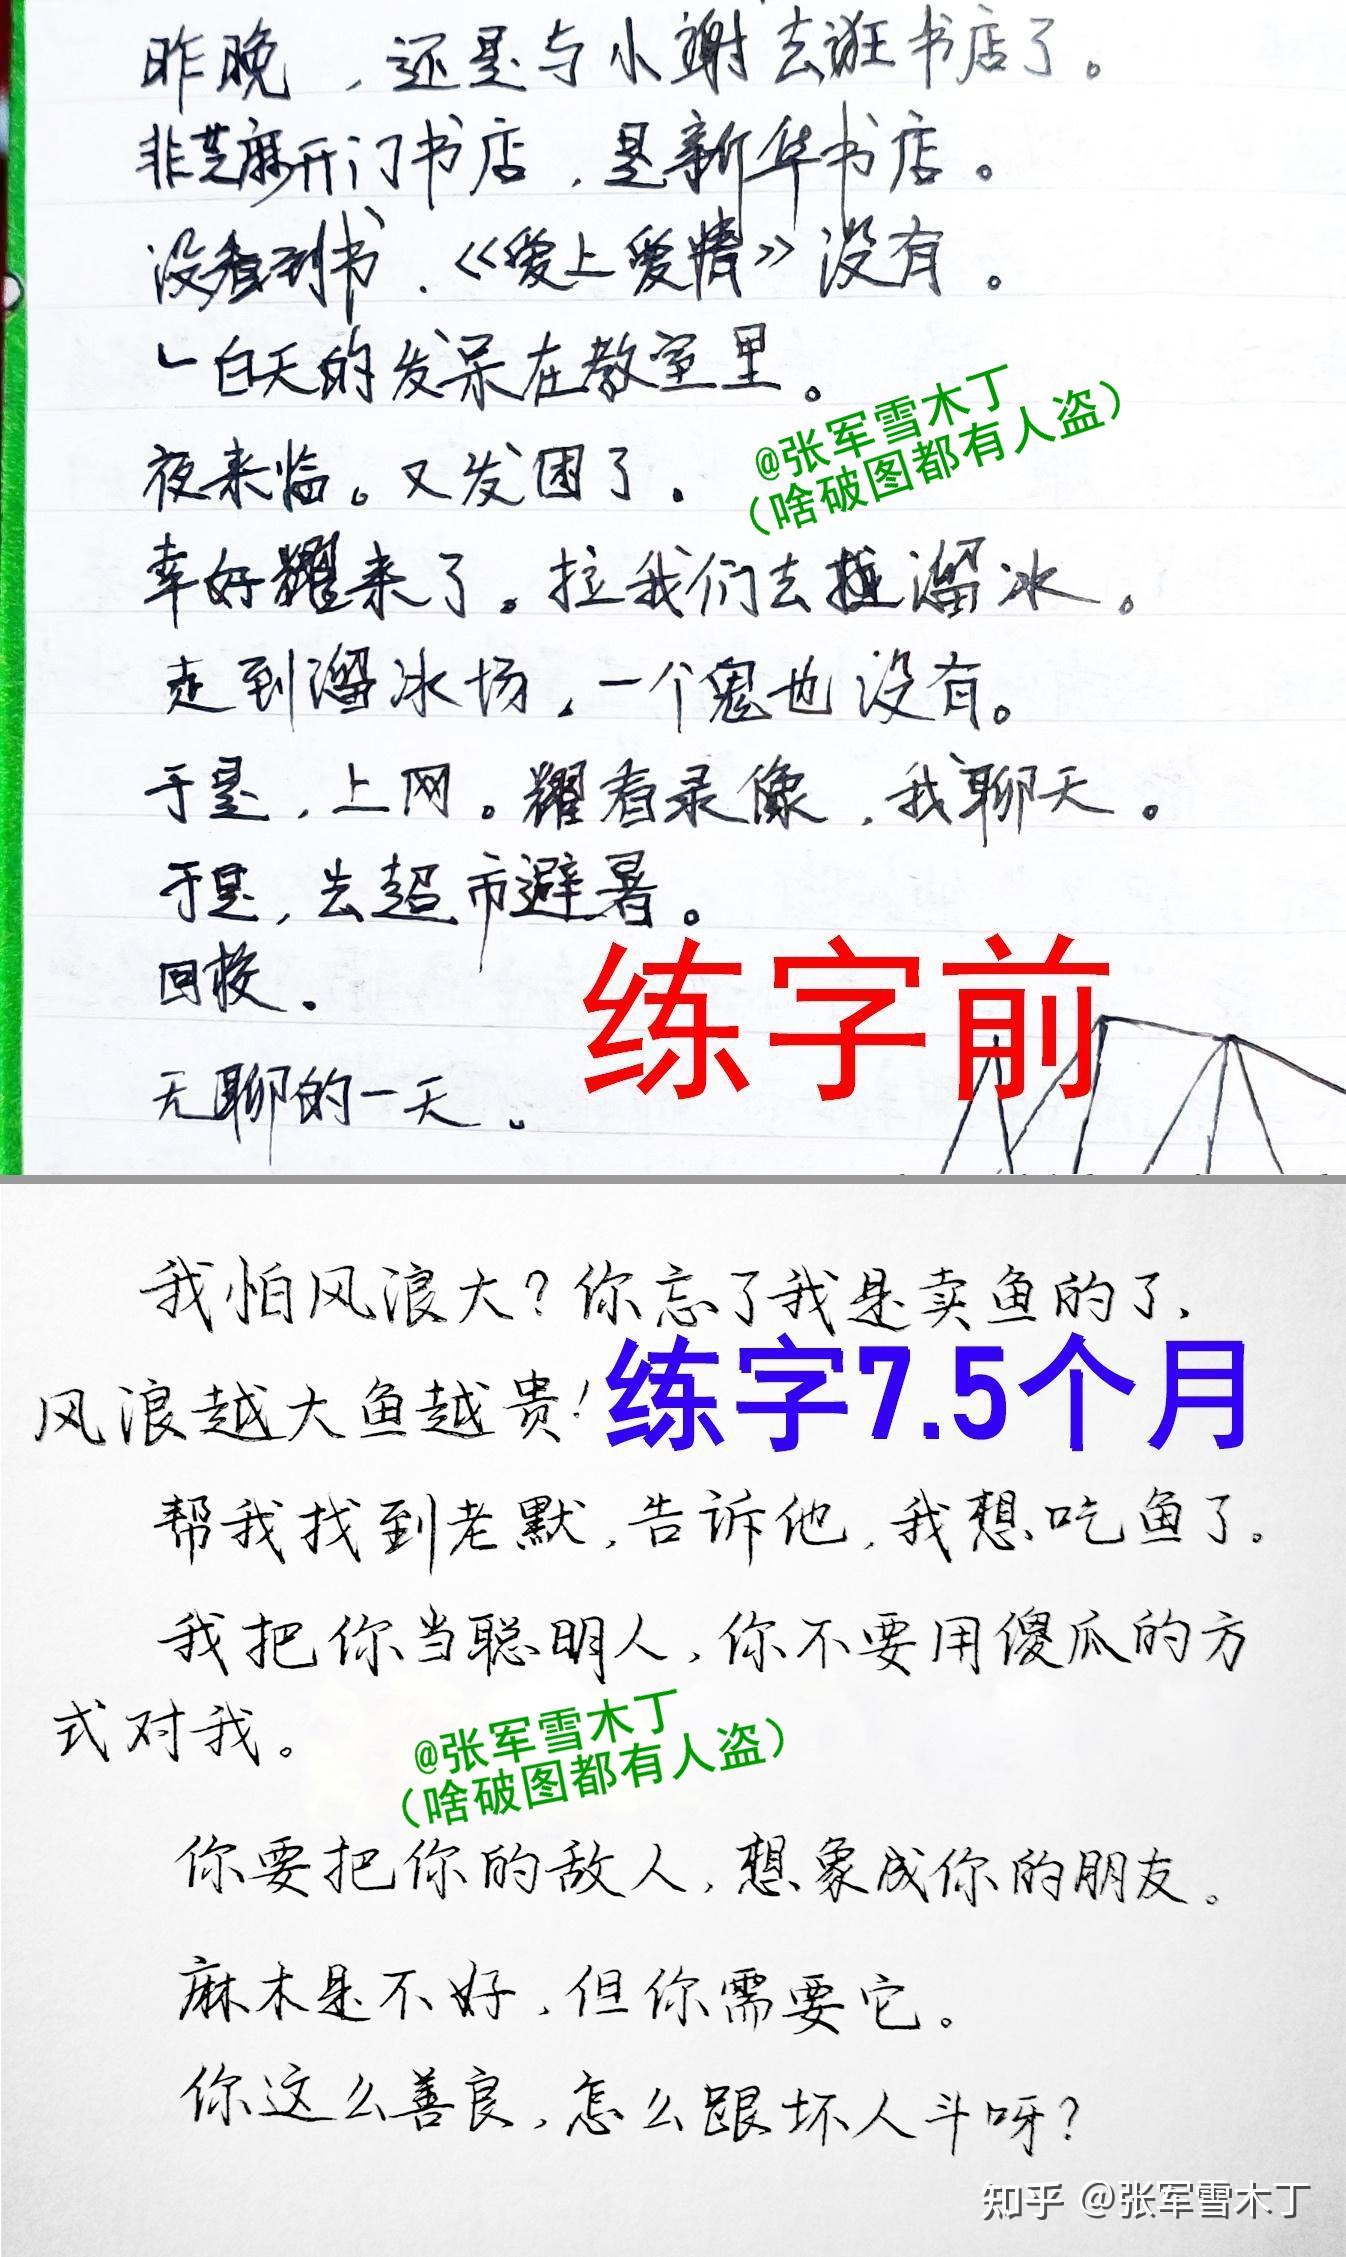 昨晚，还是与小谢去逛书店了。
非芝麻开门书店，是新华书店。
没看到书.《爱上爱情》没有。
白天的发呆在教室里。
@张军雪木丁
（啥破图都有人盗）
夜来临。又发困了.
幸好耀来了。拉我们去溜冰。
走到溜冰场，一个鬼也没有。
于是，上网。耀看录像，我聊天。
于是，去超市避暑。
回校.
练字前
无聊的一天。
我怕风浪大?你忘了我是卖鱼的了,
风浪越大鱼越贵!
练字7.5个月
帮我找到老默,告诉他,我想吃鱼了。
我把你当聪明人,你不要用傻瓜的方
式对我。
@张军雪木丁
（啥破图都有人盗）
你要把你的敌人,想象成你的朋友。
麻木是不好,但你需要它。
你这么善良,怎么跟坏人斗呀?
知乎 @张军雪木丁